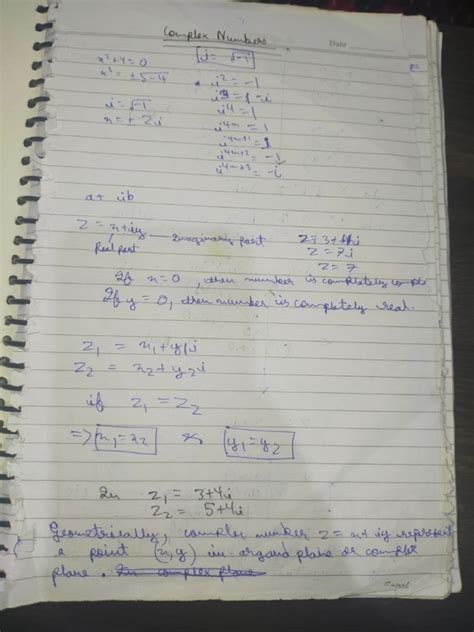 Complex Numbers
Date
x² + 4 = 0
x² = ± √-4
i = √-1
x = ± 2i
i = √-1
i² = -1
i³ = -i
i⁴ = 1
i⁴ᵐ = 1
i⁴ᵐ⁺¹ =
i⁴ᵐ⁺² = -1
i⁴ᵐ⁺³ = -i
a + ib
Z = x+iy Imaginary part
Real part
Z = 3+4i
Z = 7i
Z = 7
If x=0, then number is completely comple
If y = 0, then number is completely real.
Z₁ = x₁ + y₁i
Z₂ = x₂ + y₂i
if Z₁ = Z₂
=> x₁ = x₂ & y₁ = y₂
In Z₁ = 3+4i
Z₂ = 5+4i
Geometrically, complex number Z = x+iy represent
a point (x,y) in argand plane or complex
plane. In complex plane